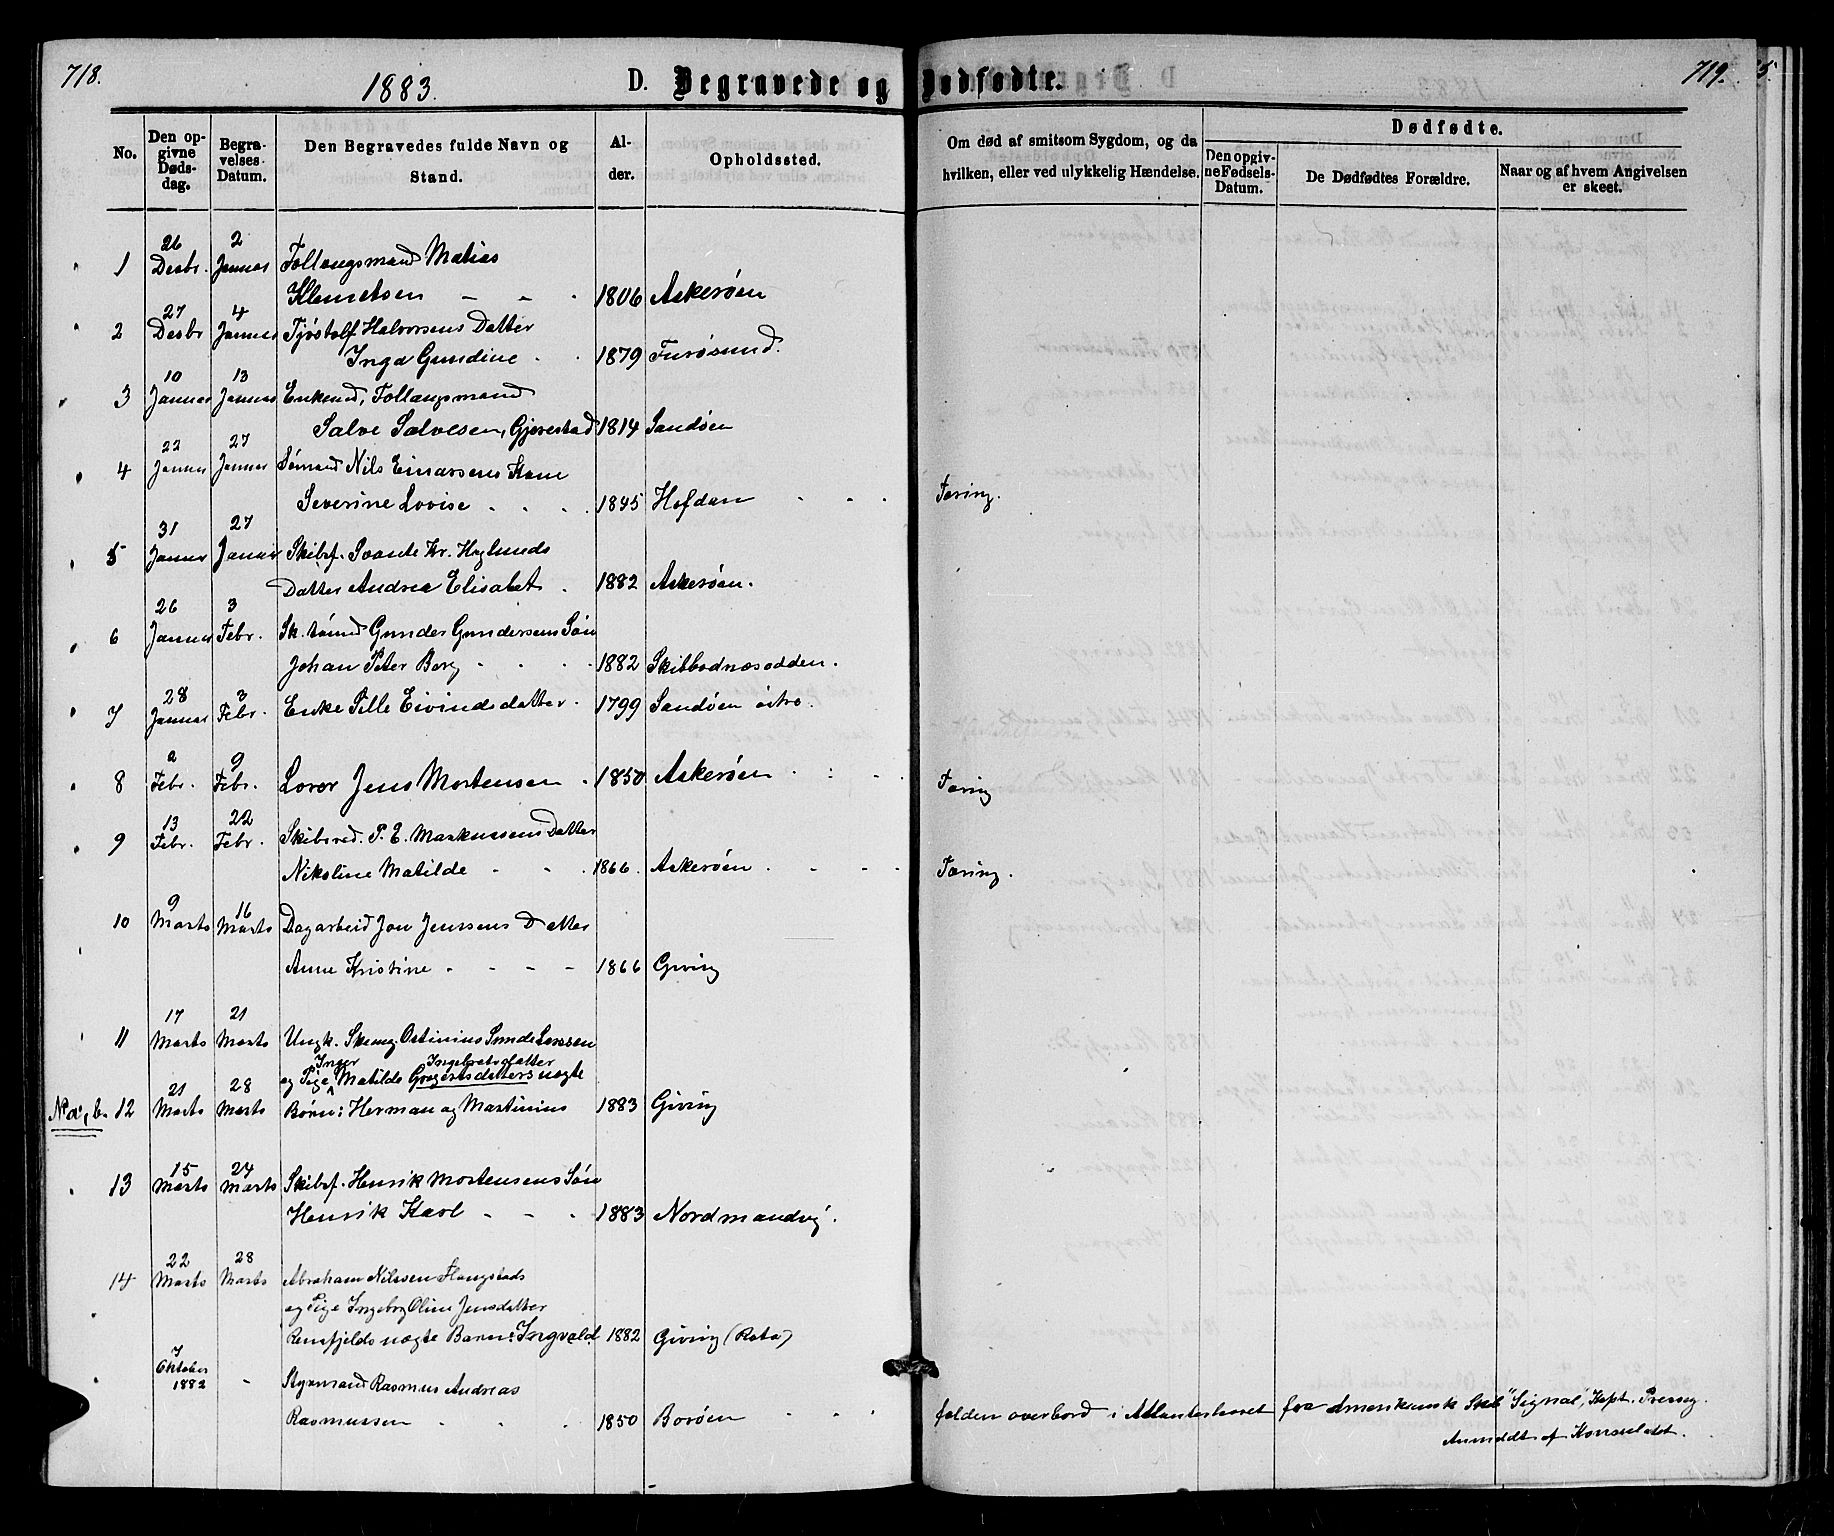 718.
1883.
D. Begravede og Dødfødte.
719.
No.
Den opgivne Dødsdag.
Begravelses Datum.
Den Begravedes fulde Navn og Stand.
Alder.
Opholdssted.
Om død af smitsom Sygdom, og da hvilken, eller ved ulykkelig Hændelse.
Dødfødte.
Den opgivne Fødsels-Datum.
De Dødfødtes Forældre.
Naar og af hvem Angivelsen er skeet.
1 26 Desbr. 2 Januar Follaugsmand Matias
Klemetsen - - . 1806 Askerøen
2 27 Desbr 4 Januar Tjøstolf Halvorsens Datter
Inga Gundine . . 1879 Furøsund.
3 10 Januar 13 Januar Enkemd, Follaugsmand
Salve Salvesen, Gjerestad 1814 Sandøen
4 22 Januar 27 Januar Sømand Nils Einarsens Kone
Severine Lovise . . . 1845 Hofdan . . . Tæring.
5 31 Januar 27 Januar Skibsf. Svante Kr. Heglunds
Datter Andrea Elisabet . 1882 Askerøen.
6 26 Januar 3 Febr. Sk.tømmd Gunder Gundersens Søn
Johan Peter Berg . . . 1882 Skibbodnæsodden.
7 28 Januar 3 Febr. Enke Sille Eivindsdatter. 1799 Sandøen østre.
8 2 Febr. 9 Febr. Lover Jens Mortensen . 1850 Askerøen . . . Tæring
9 13 Febr. 22 Febr. Skibsred. P. E. Markussens Datter
Nikoline Matilde . . . 1866. Askerøen . . . . Tæring.
10 9 Marts 16 Marts Dagarbeid Jon Jenssens Datter
Anne Kristine - - - - 1866 Giving
11 17 Marts 21 Marts Ungk. Skomg Ostinius Sunde Larssen
Inger Ingebretsdatter
og Pige Matilde Gregertsdatters uægte
N. a, b. 12 21 Marts 28 Marts Børn: Herman og Martinius 1883 Giving
13 15 Marts 24 Marts Skibsf. Henrik Mortensens Søn
Henrik Karl - - - 1883 Nordmandvig.
14 22 Marts 28 Marts Abraham Nilssen Haugstads
og Pige Ingeborg Oline Jensdatter
Rensfjelds uægte Barn: Ingvald. 1882 Giving (Rota)
7 Oktober 1882 - Styrmand Rasmus Andreas
Rasmussen . . . 1850 Borøen . . falden overbord i Atlanterhavet fra Amerikansk Skib "Signal", Kapt.
Anmeldt af Konsulatet.